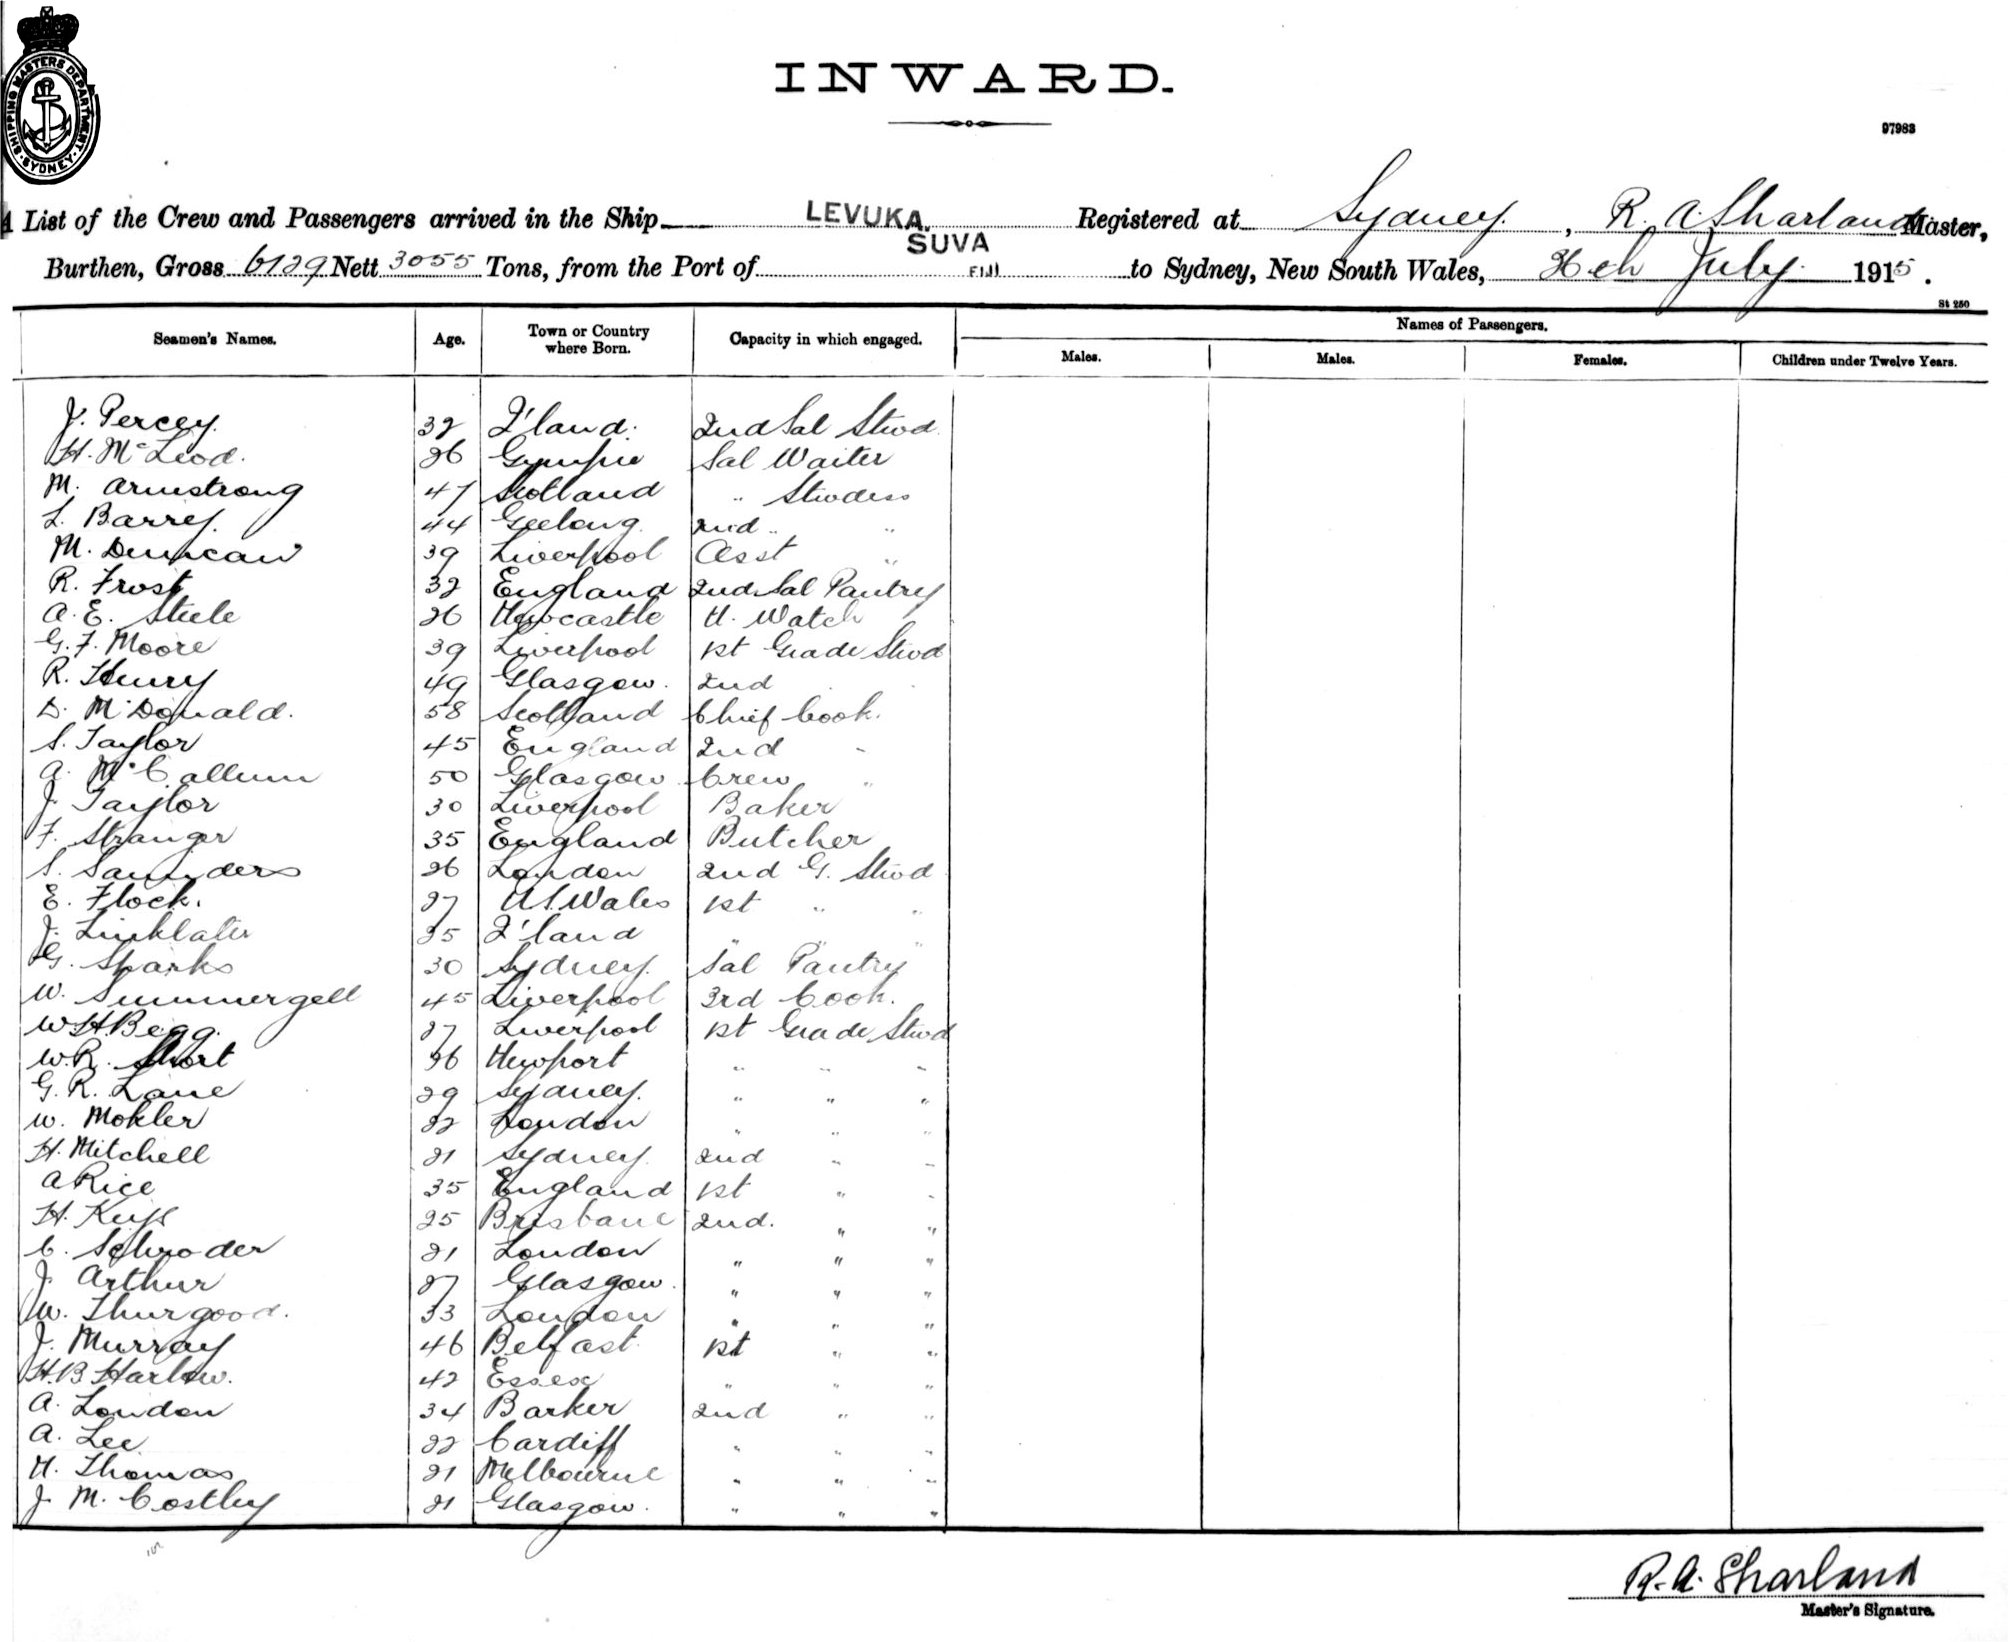 SHIPPING MASTERS DEPARTMENT
SYDNEY
INWARD.
97983
A List of the Crew and Passengers arrived in the Ship LEVUKA. Registered at Sydney. , R. A. Sharland Master,
Burthen, Gross 6129 Nett 3055 Tons, from the Port of SUVA FIJI to Sydney, New South Wales, July. 1915.
St 250
Seamen's Names. Age. Town or Country where Born. Capacity in which engaged. Names of Passengers.
Males. Males. Females. Children under Twelve Years.
J. Percey. 32 Q'land. 2nd Sal Stwd
H. McLeod. 26 Gympie Sal Waiter
M. Armstrong 47 Scotland " Stwdess
L. Barrey. 44 Geelong. 2nd " "
M. Duncan 39 Liverpool Asst "
R. Frost 32 England 2nd Sal Pantry
A. E. Steele 26 Newcastle N. Watch
G. F. Moore 39 Liverpool 1st Grade Stwd
R. Henry 49 Glasgow. 2nd
D. McDonald. 58 Scotland Chief Cook.
S. Taylor 45 England 2nd "
A. McCallum 50 Glasgow Crew "
J. Taylor 30 Liverpool Baker
F. Stranger 35 England Butcher
S. Saunders 26 London 2nd G. Stwd
E. Flock. 27 N.S.Wales 1st " "
J. Linklater 35 Q'land " " "
G. Sparks 30 Sydney. Sal Pantry
W. Summergell 45 Liverpool 3rd Cook.
W.H.Begg. 27 Liverpool 1st Grade Stwd
W.R. Short 26 Newport " " "
G. R. Lane 29 Sydney. " " "
W. Mokler 22 London " " "
H. Mitchell 21 Sydney. 2nd " "
A Rice 35 England 1st " "
H. 25 Brisbane 2nd. " "
C. Schroder 21 London " " "
J. Arthur 27 Glasgow. " " "
W. Thurgood. 33 London " " "
J. Murray 46 Belfast. 1st " "
H.B Harlow. 42 Essex " " "
A. London 34 Barker 2nd " "
A. Lee 22 Cardiff " " "
H. Thomas 21 Melbourne " " "
J. M. Costley 21 Glasgow. " " "
R. A. Sharland
Master's Signature.